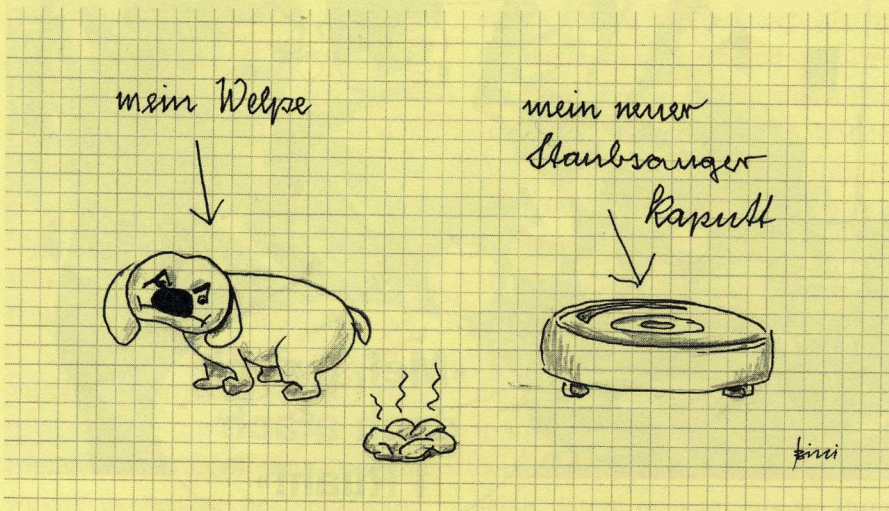 mein Welpe
mein neuer
Staubsauger
kaputt